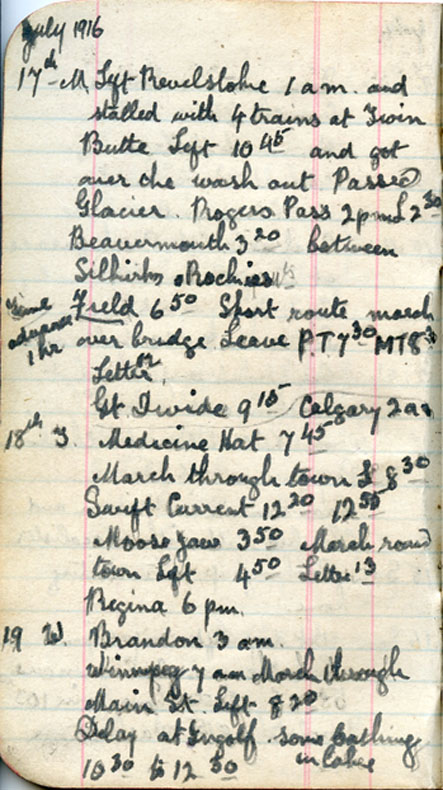 July 1916
17th M Left Revelstoke 1 a.m. and
stalled with 4 trains at Twin
Butte Left 10 45 and got
over the wash out Passed
Glacier. Rogers Pass 2 pm L 2 30
Beavermouth 3 20 between
Silkirks & Rockies
Time advance 1 hr
Field 6 50 Short route march
over bridge Leave P.T 7 30 MT 8 30
Letter 12.
Gt Divide 9 15 Calgary 2 am
18th T. Medicine Hat 7 45
March through town L 8 30
Swift Current 12 20 12 50
Moose Jaw 3 50 March round
town Left 4 50 Letter 13
Regina 6 pm.
19 W. Brandon 3 am.
Winnipeg 7 am March through
Main St. Left 8 20
Delay at Ingolf. some bathing
10 30 to 12 30 in lake